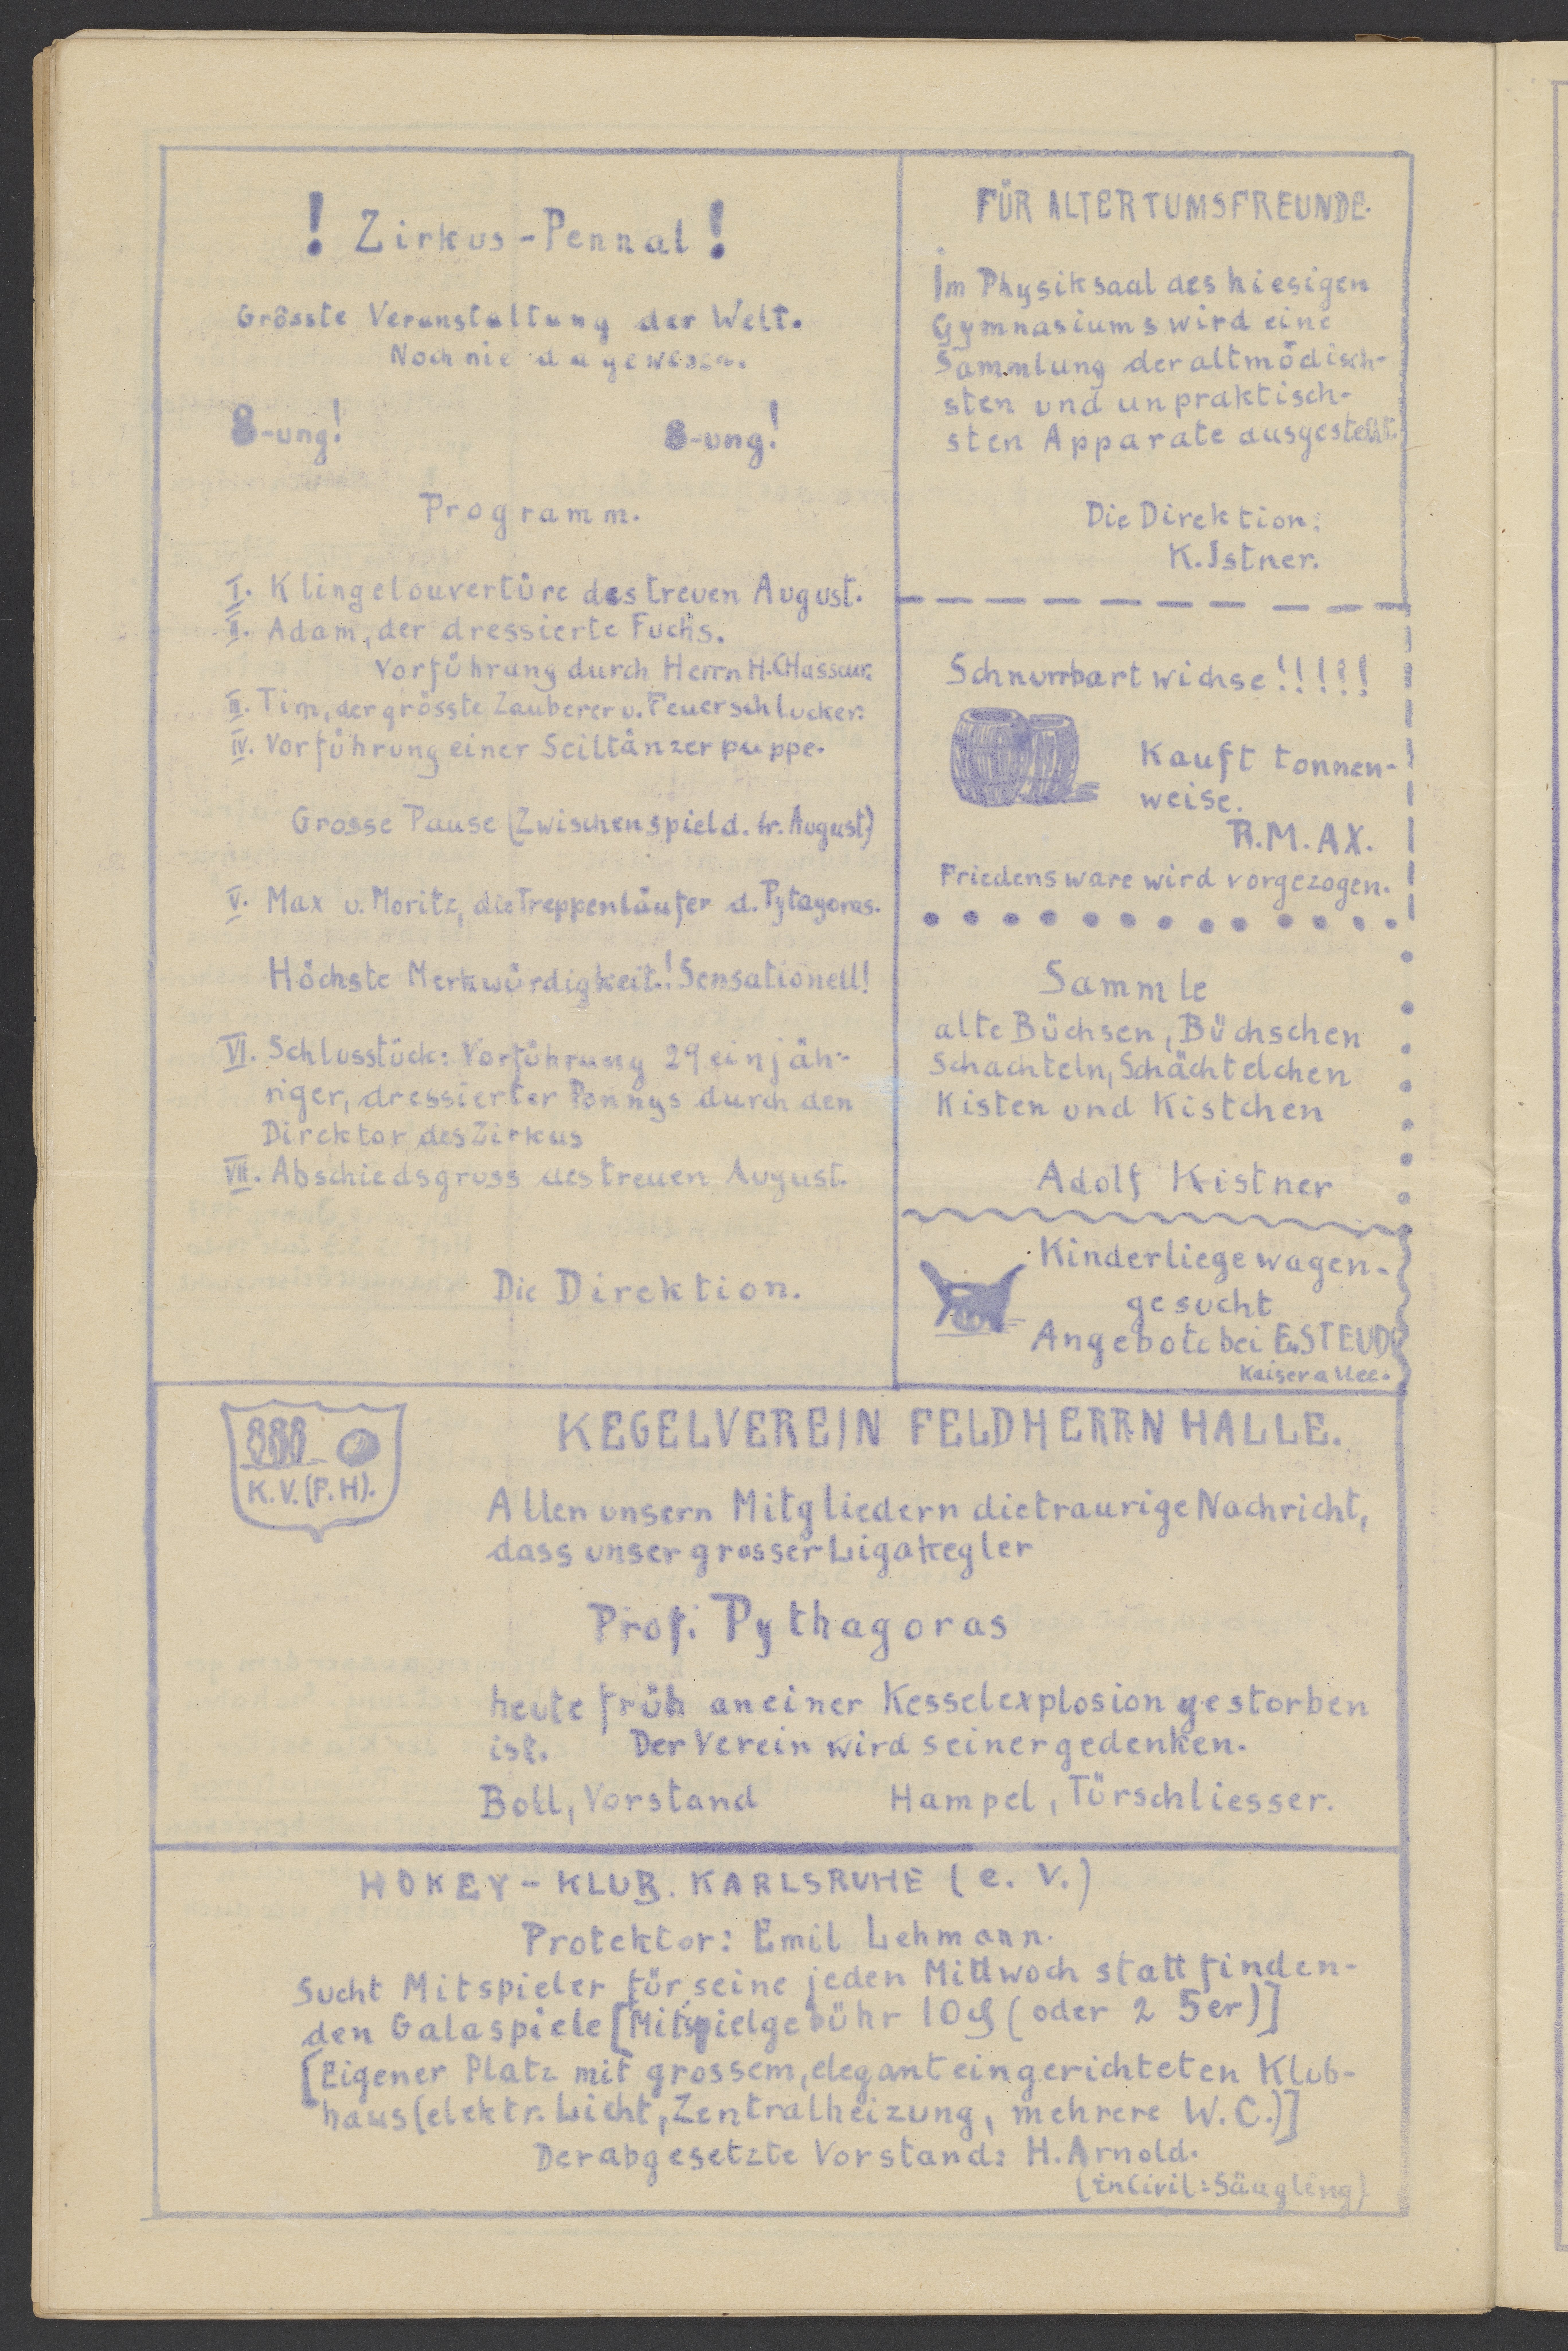 ! Zirkus-Pennal!
Grösste Veranstaltung der Welt.
Noch nie dagewesen.
8-ung! 8-ung!
Programm.
I. Klingelouvertüre des treuen August.
II. Adam, der dressierte Fuchs.
Vorführung durch Herrn H. CHasseur.
III. Tim, der grösste Zauberer u. Feuerschlucker.
IV. Vorführung einer Seiltänzerpuppe.
Grosse Pause (Zwischenspiel d. tr. August)
V. Max u. Moritz, die Treppenläufer d. Pytagoras.
Höchste Merkwürdigkeit.! Sensationell!
VI. Schlusstück: Vorführung 29 einjäh-
riger, dressierter Ponnys durch den
Direktor des Zirkus
VII. Abschiedsgruss des treuen August.
Die Direktion.
FÜR ALTERTUMSFREUNDE.
Im Physiksaal des hiesigen
Gymnasiums wird eine
Sammlung der altmödisch-
sten und unpraktisch-
sten Apparate ausgestellt.
Die Direktion:
K. Istner.
Schnurrbartwichse!!!!!
Kauft tonnen-
weise.
R.M.AX.
Friedensware wird vorgezogen.
Sammle
alte Büchsen, Büchschen
Schachteln, Schächtelchen
Kisten und Kistchen
Adolf Kistner
Kinderliegewagen-
gesucht
Angebote bei E. STEUDE
Kaiserallee.
K.V.(F.H).
KEGELVEREIN FELDHERRNHALLE.
Allen unsern Mitgliedern die traurige Nachricht,
dass unser grosser Ligakegler
Prof. Pythagoras
heute früh an einer Kesselexplosion gestorben
ist. Der Verein wird seiner gedenken.
Boll, Vorstand Hampel, Türschliesser.
HOKEY-KLUB. KARLSRUHE (e. V.)
Protektor: Emil Lehmann.
Sucht Mitspieler für seine jeden Mittwoch stattfinden-
den Galaspiele [Mitspielgebühr 10 ₰ (oder 2 5er)]
[Eigener Platz mit grossem, elegant eingerichteten Klub-
haus (elektr. Licht, Zentralheizung, mehrere W.C.)]
Der abgesetzte Vorstand: H. Arnold.
(in Civil: Säugling)